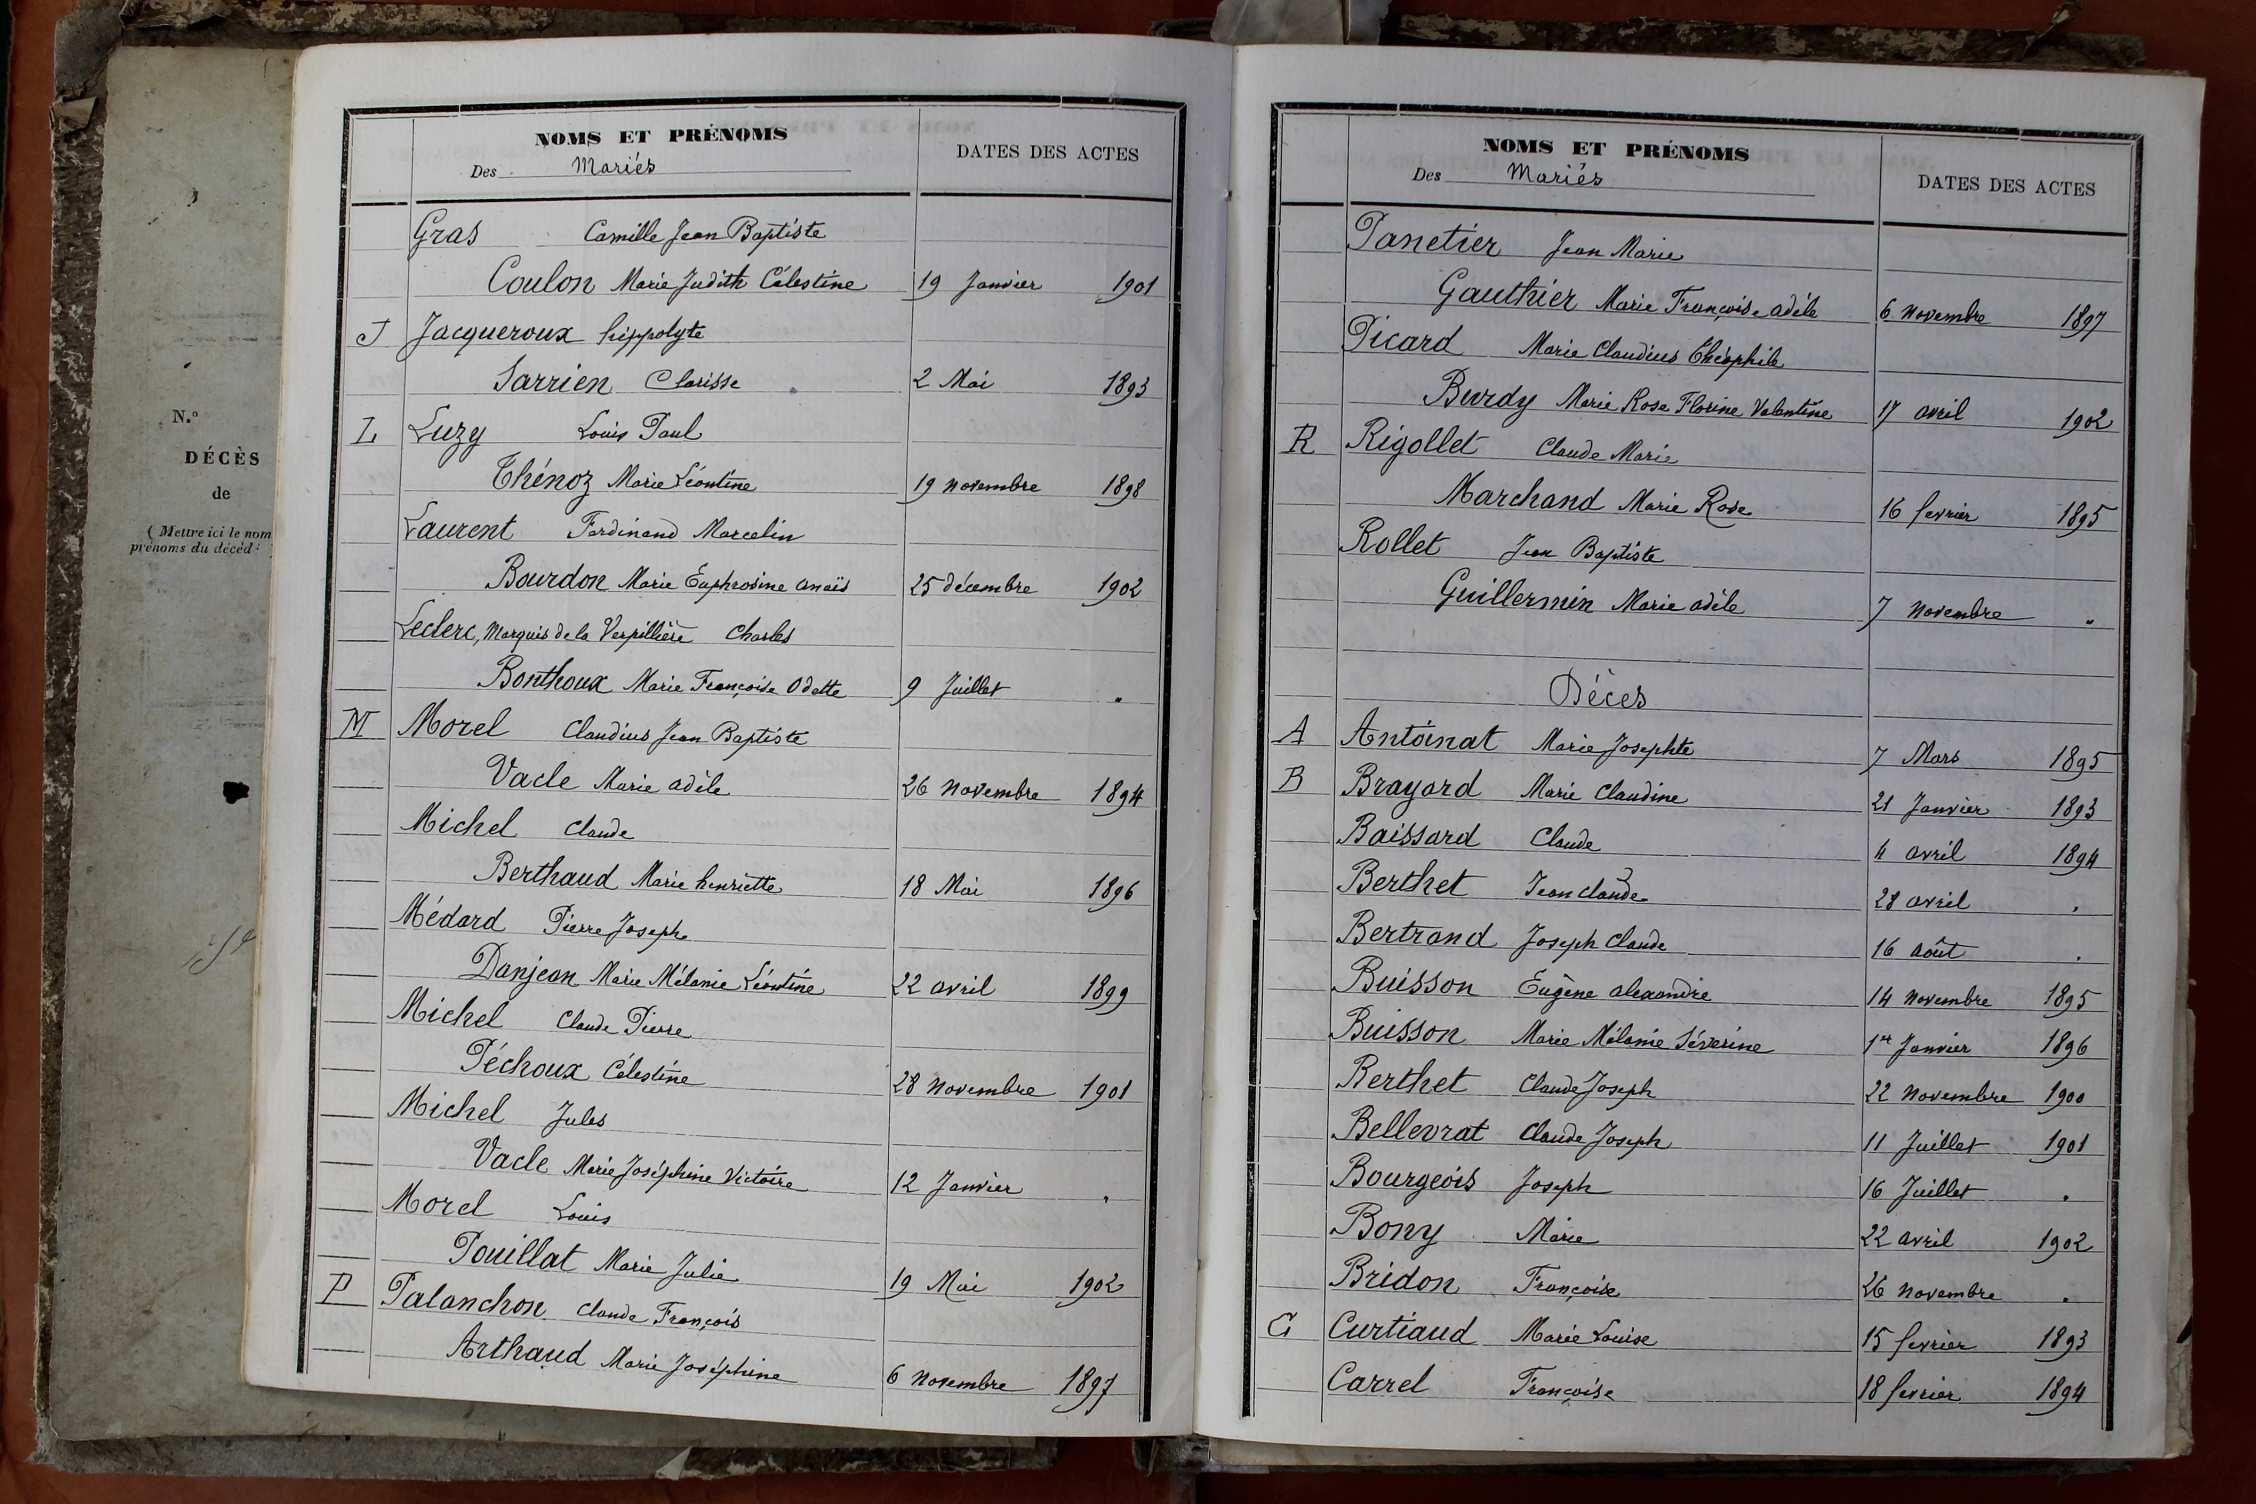 N.º
DÉCÈS
de
( Mettre ici le nom
prénoms du décéd
NOMS ET PRÉNOMS
Des Mariés
DATES DES ACTES
Gras Camille Jean Baptiste
Coulon Marie Judith Célestine 19 Janvier 1901
J Jacqueroux hippolyte
Sarrien Clarisse 2 Mai 1893
L Luzy Louis Paul
Thénoz Marie Léontine 19 novembre 1898
Laurent Ferdinand Marcelin
Bourdon Marie Euphrosine anaïs 25 décembre 1902
Leclerc, Marquis de la Verpillière Charles
Bonthoux Marie Françoise Odette 9 Juillet "
M Morel Claudius Jean Baptiste
Vacle Marie adèle 26 novembre 1894
Michel Claude
Berthaud Marie henriette 18 Mai 1896
Médard Pierre Joseph
Danjean Marie Mélanie Léontine 22 avril 1899
Michel Claude Pierre
Péchoux Célestine 28 novembre 1901
Michel Jules
Vacle Marie Joséphine Victoire 12 Janvier "
Morel Louis
Pouillat Marie Julie 19 Mai 1902
P Palanchon Claude François
Arthaud Marie Joséphine 6 novembre 1897
NOMS ET PRÉNOMS
Des Mariés
DATES DES ACTES
Panetier Jean Marie
Gauthier Marie Françoise adèle 6 novembre 1897
Picard Marie Claudius Théophile
Burdy Marie Rose Florine Valentine 17 avril 1902
R Rigollet Claude Marie
Marchand Marie Rose 16 fevrier 1895
Rollet Jean Baptiste
Guillermin Marie adèle 7 novembre "
Déces
A Antoinat Marie Josephte 7 Mars 1895
B Brayard Marie Claudine 21 Janvier 1893
Baissard Claude 4 avril 1894
Berthet Jean claude 28 avril "
Bertrand Joseph Claude 16 août "
Buisson Eugène alexandre 14 novembre 1895
Buisson Marie Mélanie Séverine 1er Janvier 1896
Berthet Claude Joseph 22 novembre 1900
Bellevrat Claude Joseph 11 Juillet 1901
Bourgeois Joseph 16 Juillet "
Bony Marie 22 avril 1902
Bridon Françoise 26 novembre "
C Curtiaud Marie Louise 15 fevrier 1893
Carrel Françoise 18 fevrier 1894